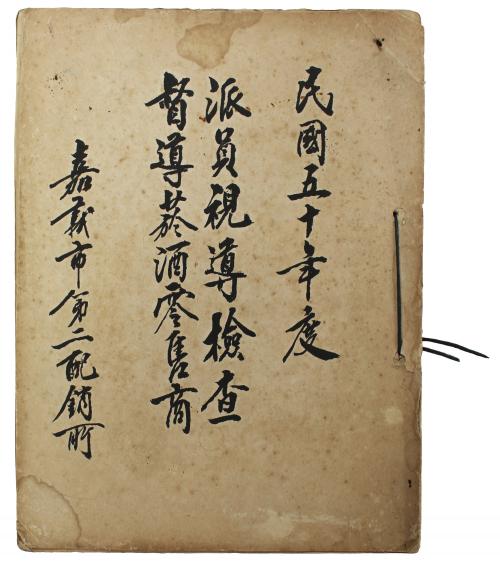 民國五十年度
派員視導檢查
督導菸酒零售商
嘉義市第二配銷所